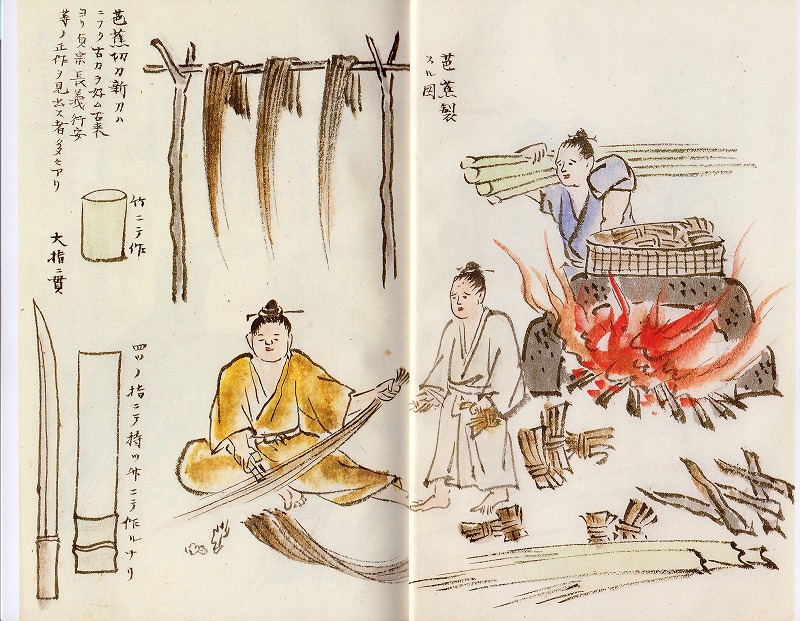 芭蕉製
スル図
芭蕉切刀新刀ハ
ニフク古刀ヲ好ム古来
ヨリ貞宗長義行安
等ノ正作ヲ見出ス者多々アリ
竹ニテ作
大指ニ貫
四ツノ指ニテ持ツ竹ニテ作ルナリ